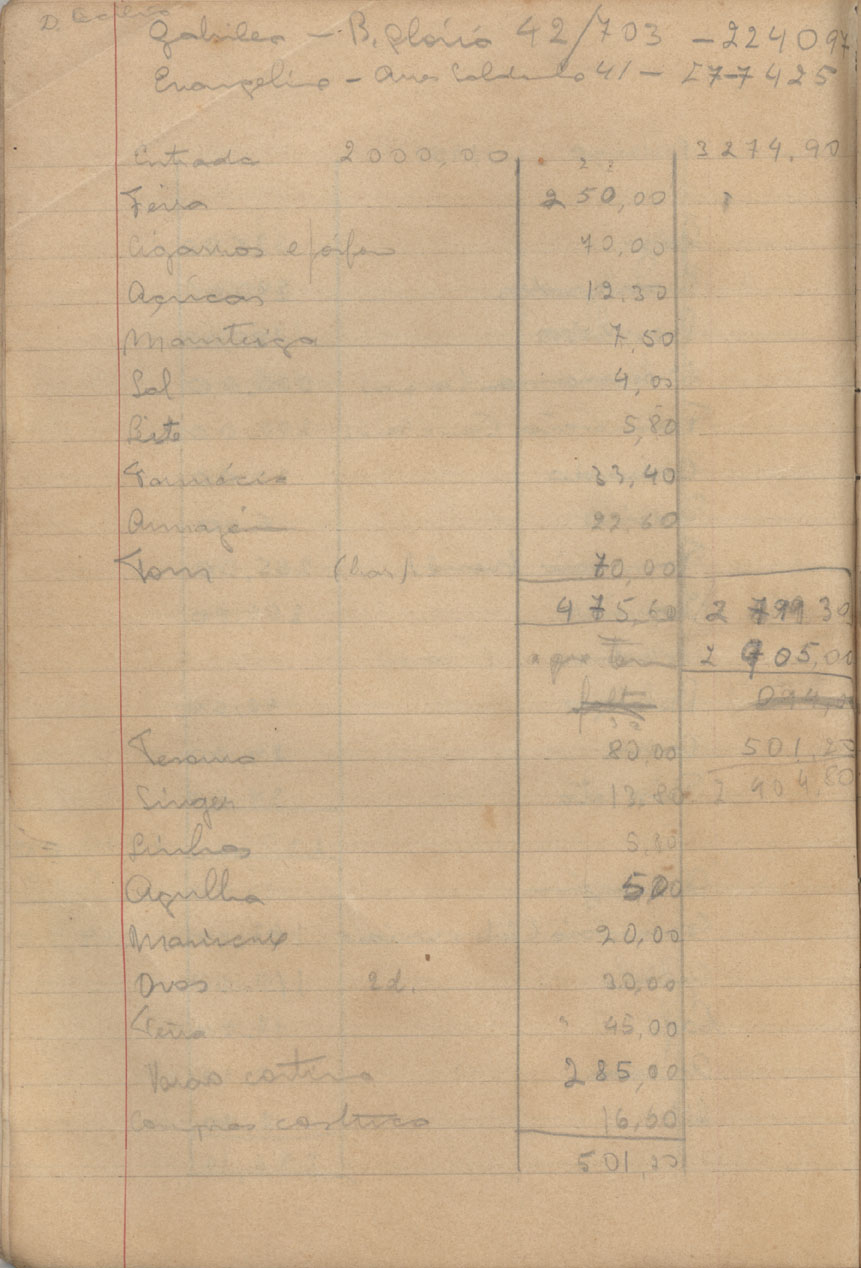 D.
Gabriela - B. Glória 42/703 - 224097
Evangelina - 41 - 277425
Entrada 2000,00 3274,90
Feira 250,00
Cigarros e fósforo 70,00
Açúcar 12,30
Manteiga 7,50
Sal 4,00
Leite 5,80
Farmácia 33,40
Armazém 22,60
Tom 70,00
475,60 2 799 30
o que tem 2 705,00
falta 094,
Tesoura 80,00 501,20
Singer 13,80 2
Linhas 5,80
Agulha 500
20,00
Ovos 2d. 30,00
Feira 45,00
Varas cortina 285,00
Compras costura 16,60
501,20